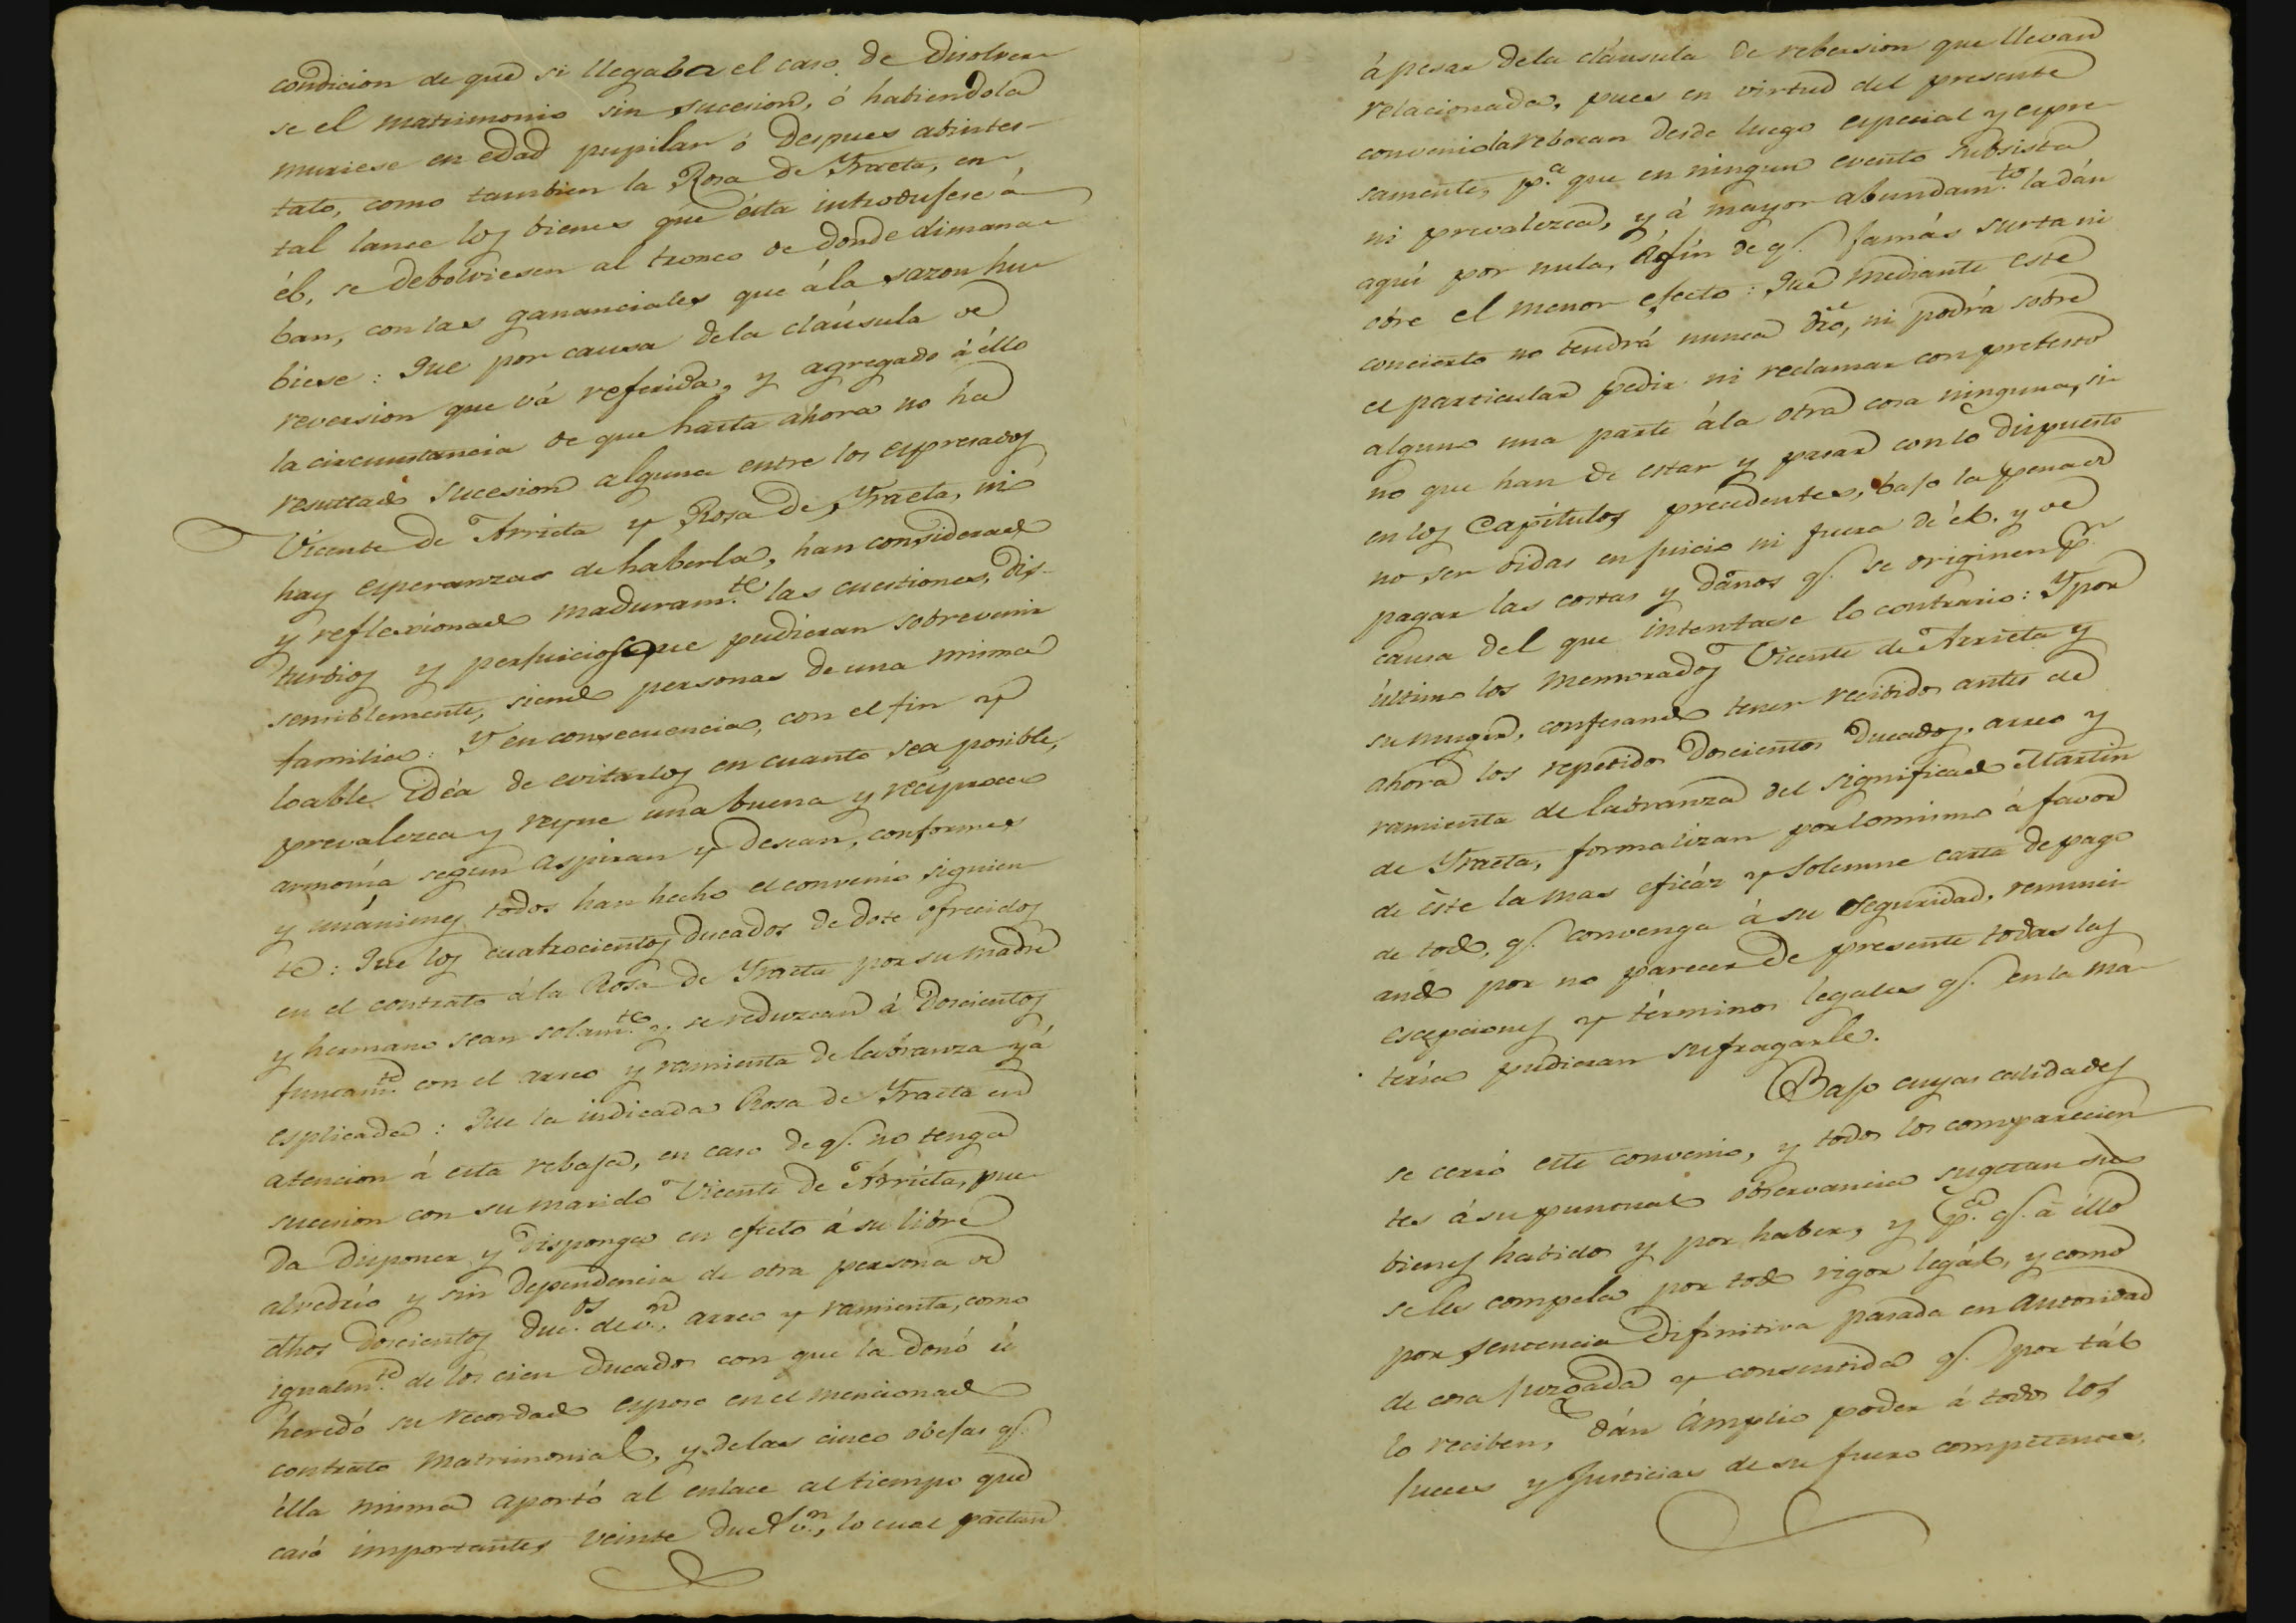 condicion de que si llegaba el caso de disolver-
se el matrimonio sin sucesion, ó habiendola
muriese en edad pupilar ó despues abintes-
tato, como tambien la Rosa de Yraeta, en
tal lance los bienes que ésta introdujese á
él, se debolviesen al tronco de donde dimana-
ban, con las gananciales que á la sazon hu-
biese: Que por causa dela cláusula de
reversion que vá referida, y agregado á éllo
la circunstancia de que hasta ahora no ha
resultado sucesion alguna entre los espresados
Vicente de Arrieta y Rosa de Yraeta, ni
hay esperanzas de haberla, han considerado
y reflexionado maduramte. las cuestiones, dis-
turbios y perjuicios que pudieran sobrevenir
sensiblemente, siendo personas de una misma
familia: Y en consecuencia, con el fin y
loable idéa de evitarlos en cuanto sea posible,
prevalezca y reyne una buena y recíproca
armonía segun aspiran y desean, conformes
y unánimes todos han hecho el convenio siguien
te: Que los cuatrocientos ducados de dote ofrecidos
en el contrato á la Rosa de Yraeta por su madre
y hermano sean solamte. y se reduzcan á doscientos
juntamte. con el arreo y ramienta de labranza yá
esplicada: Que la indicada Rosa de Yraeta en
atencion á esta rebaja, en caso de q. no tenga
sucesion con su marido Vicente de Arrieta, pue-
da disponer y disponga en efecto á su libre
alvedrío y sin dependencia de otra persona de
dhos doscientos ducos. de vn., arreo y ramienta, como
igualmte. de los cien ducados con que la donó ú
heredó su recordado esposo en el mencionado
contrato matrimonial, y delas cinco obejas q.
élla misma aportó al enlace al tiempo que
casó importantes veinte ducs. vn., lo cual pactan
á pesar dela cláusula de rebersion que llevan
relacionada, pues en virtud del presente
convenio la rebocan desde luego especial y espre-
samente, pa. que en ningun evento subsista
ni prevalezca, y á mayor abundamto. la dán
aquí por nula, á fín de q. jamás surta ni
obre el menor efecto: Que mediante este
concierto no tendrá nunca dro, ni podrá sobre
el particular pedir ni reclamar con pretesto
alguno una parte á la otra cosa ninguna, si-
no que han de estar y pasar con lo dispuesto
en los Capítulos precedentes, bajo la pena de
no ser oidas en juicio ni fuera de él. y de
pagar las costas y daños q. se originen pr.
causa del que intentase lo contrario: Y por
último los memorados Vicente de Arrieta y
su muger, confesando tener recibidos antes de
ahora los repetidos doscientos ducados, arreo y
ramienta de labranza del significado Martin
de Yraeta, formalizan por lo mismo á favor
de éste la mas eficáz y solemne carta de pago
de todo, q. convenga á su seguridad, renunci-
ando por no parecer de presente todas las
escepciones y términos legales q. en la ma-
teria pudieran sufragarle.
Bajo cuyas calidades
se cerró este convenio, y todos los comparecien
tes á su puntual observancia sugetan sus
bienes habidos y por haber, y pa. q. á éllo
se les compela por todo rigor legál, y como
por sentencia difinitiva pasada en autoridad
de cosa juzgada y consentida q. por tál
lo reciben, dán ámplio poder á todos los
Jueces y Justicias de su fuero competentes,